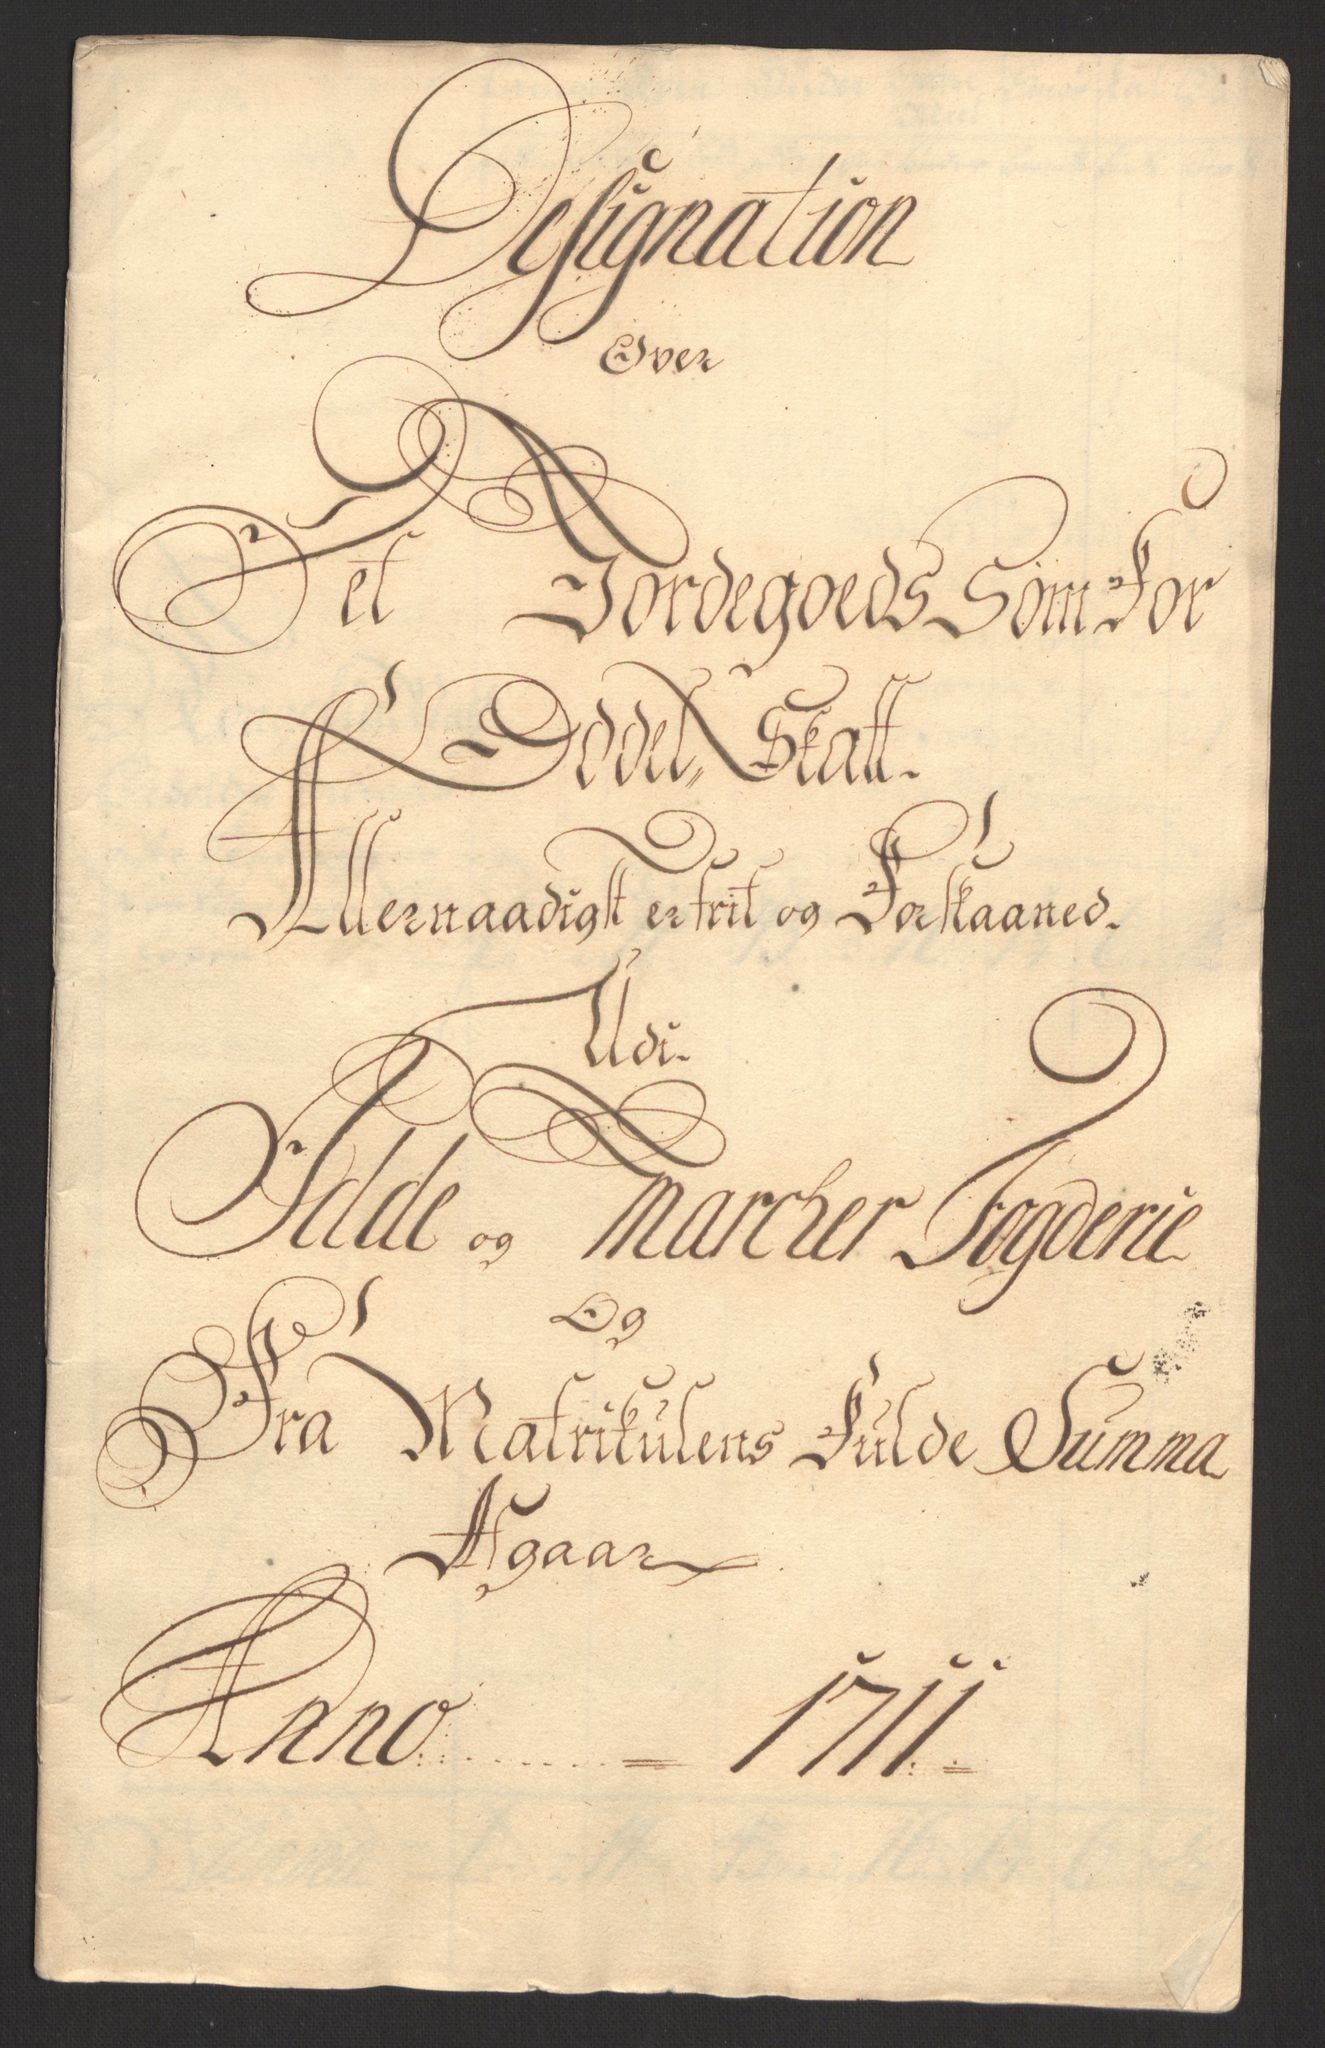 Designation
Over
Det Jordegoeds Som For
Oddel, Skatt.
Allernaadigst er frit og Forskaaned.
Udi.
Idde og Marcker Fogderie
Og
Fra Matrikulens Fulde Summa
Afgaar
Anno 1711